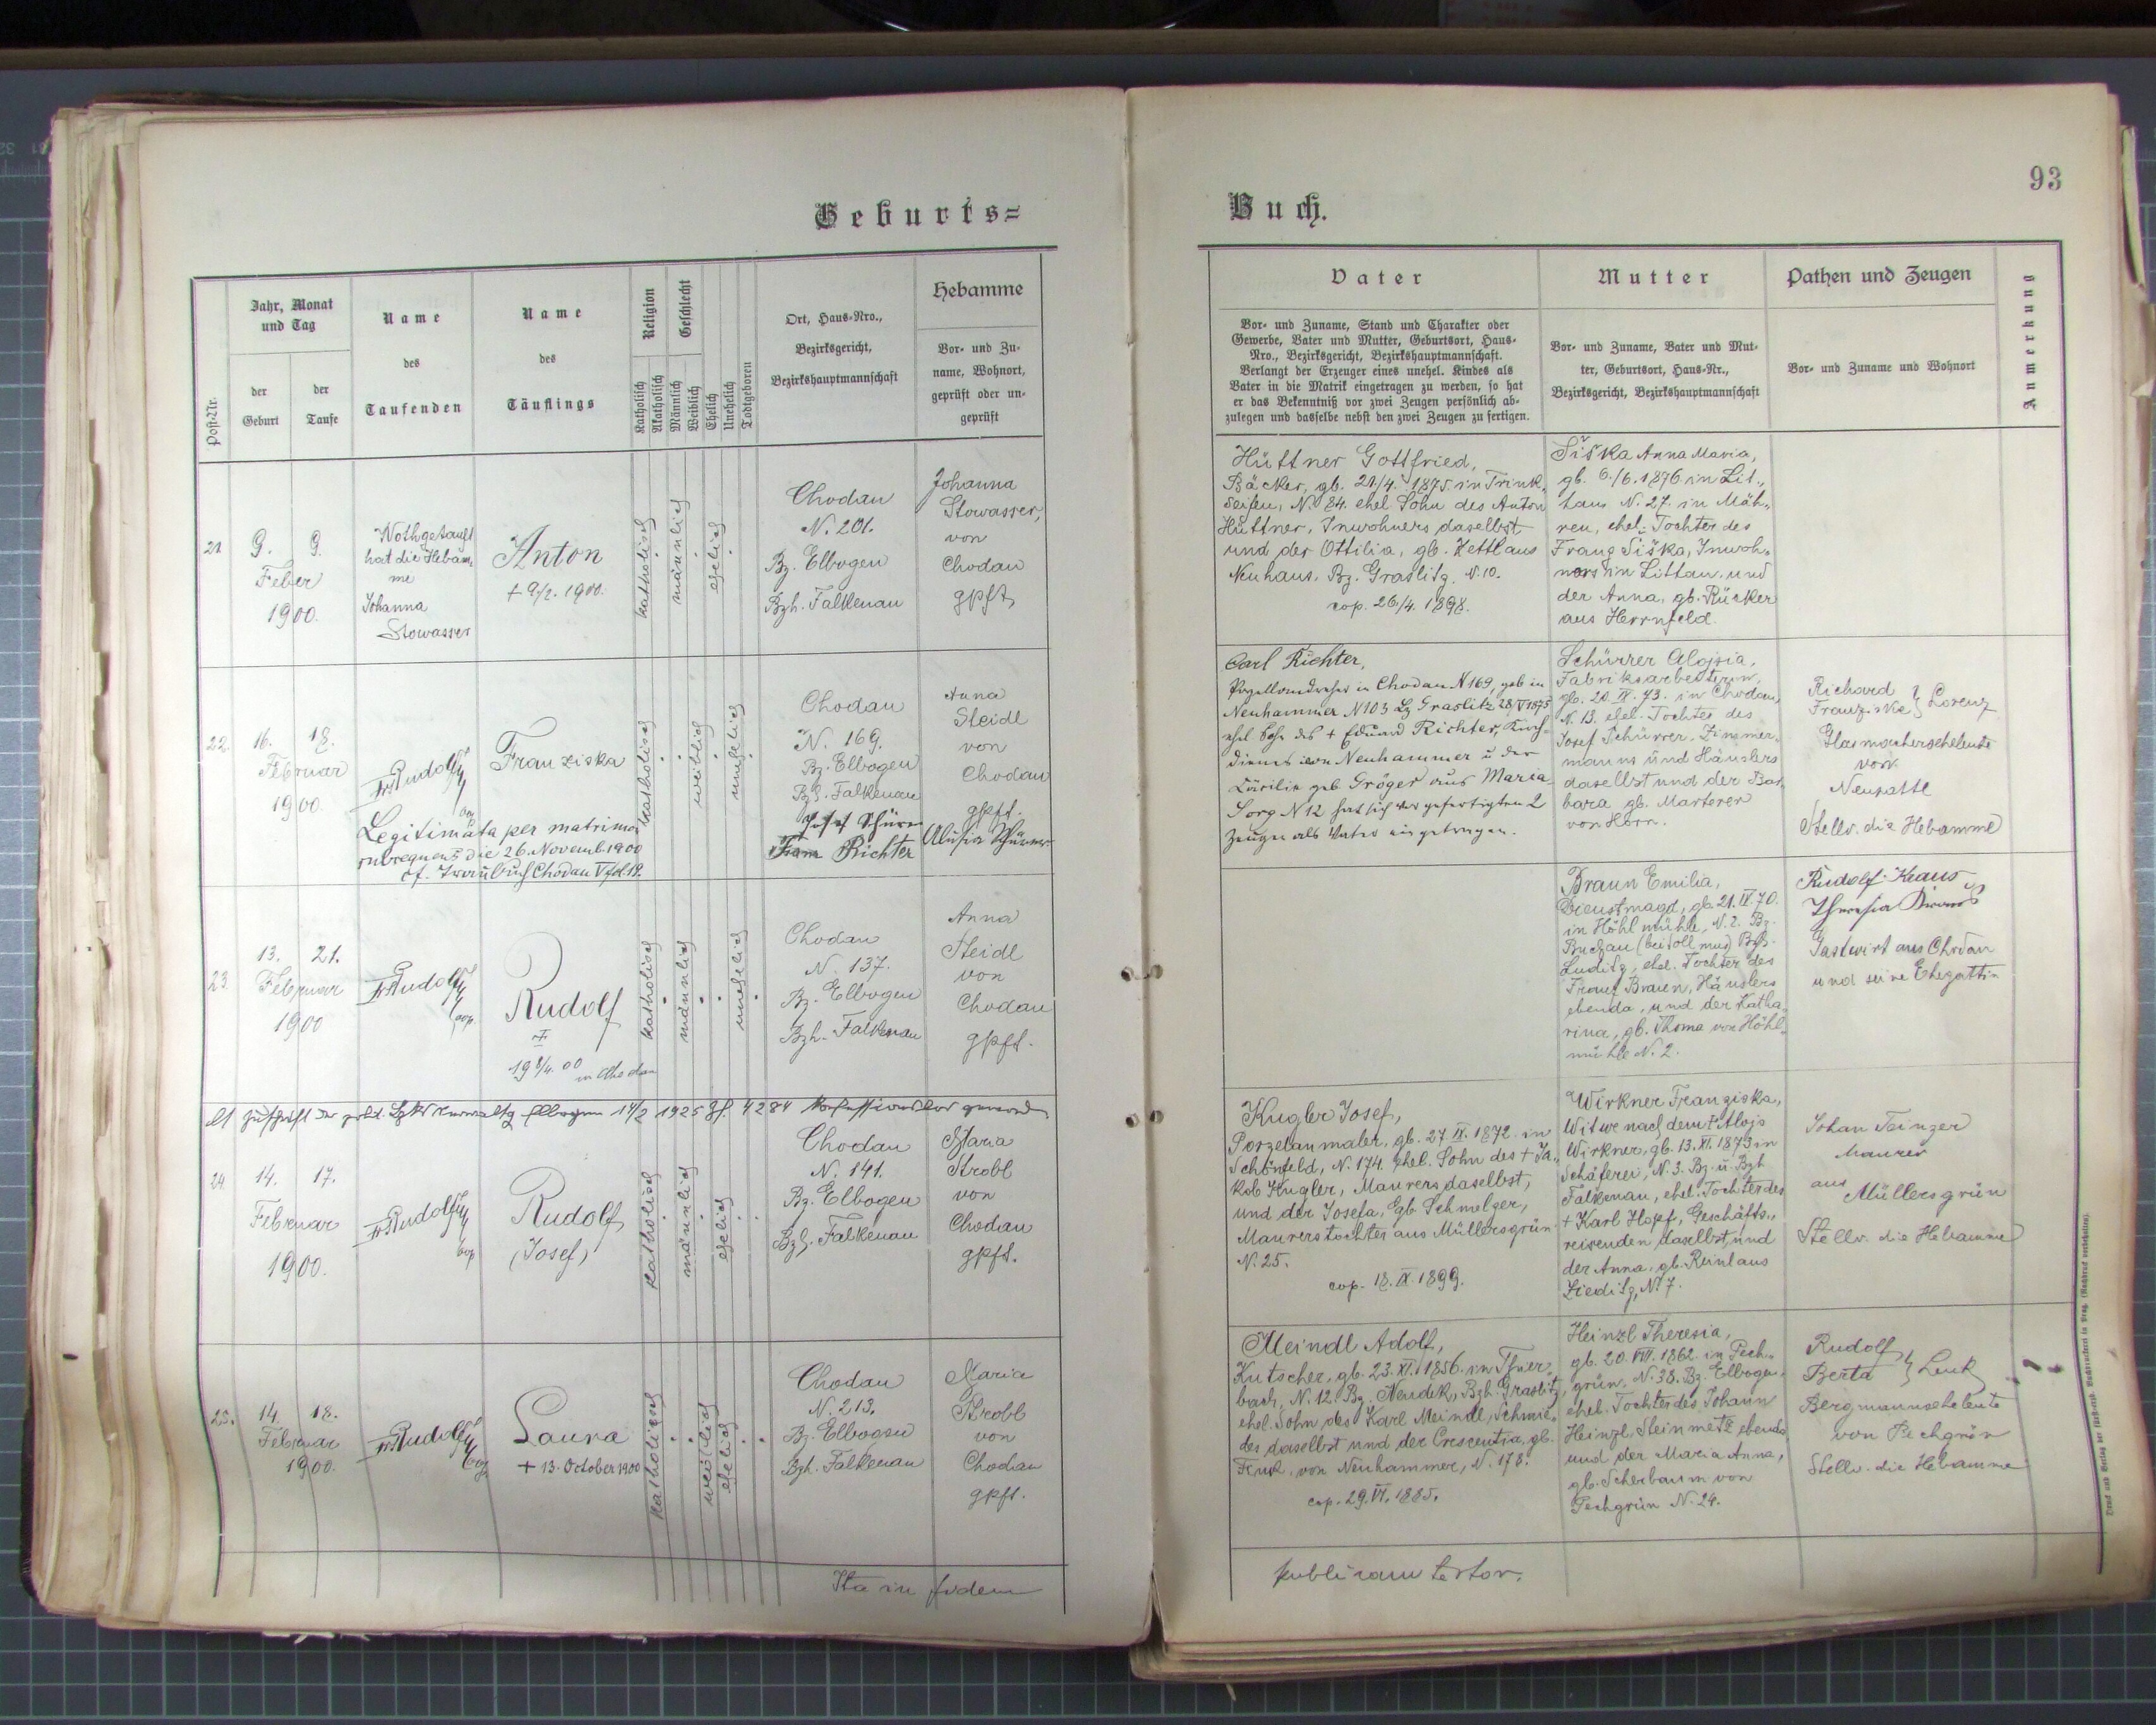 Geburts=
Post-Nr.
Jahr, Monat
und Tag
der
Geburt
der
Taufe
Name
des
Taufenden
Name
des
Täuflings
Religion
Katholisch
Akatholisch
Geschlecht
Männlich
Weiblich
Ehelich
Unehelich
Todtgeboren
Ort, Haus-Nro.,
Bezirksgericht,
Bezirkshauptmannschaft
Hebamme
Vor- und Zu-
name, Wohnort,
geprüft oder un-
geprüft
21
9. 9.
Feber
1900.
Nothgetauft
hat die Hebam-
me
Johanna
Stowasser
Anton
+ 9/2. 1900.
katholisch
männlich
ehelich
Chodau
N. 201.
Bz. Elbogen
Bzh. Falkenau
Johanna
Stowasser,
von
Chodau
gpft
22.
16. 18.
Februar
1900.
Fr. Rudolf
Franziska
katholisch
weiblich
unehelich
Chodau
N. 169.
Bz. Elbogen
Bzh. Falkenau
Josef Schürer
Franz Richter
Anna
Steidl
von
Chodau
gpft.
Aloisia Schürer
Legitimata per matrimon
subsequens die 26. Novemb. 1900
cf. Traubuch Chodau V fol. 19.
23.
13. 21.
Februar
1900
Fr. Rudolf
coop.
Rudolf
+
19 8/4. 00 in Chodau
katholisch
männlich
unehelich
Chodau
N. 137.
Bz. Elbogen
Bzh. Falkenau
Anna
Steidl
von
Chodau
gpft.
Elbogen 14/2 1925 4284
24.
14. 17.
Februar
1900.
Fr. Rudolf
coop
Rudolf
(Josef)
katholisch
männlich
ehelich
Chodau
N. 141.
Bz. Elbogen
Bzh. Falkenau
Maria
Strobl
von
Chodau
gpft.
25.
14. 18.
Februar
1900.
Fr. Rudolf
coop
Laura
+ 13. October 1900
katholisch
weiblich
ehelich
Chodau
N. 213.
Bz. Elbogen
Bzh. Falkenau
Maria
Strobl
von
Chodau
gpft.
Ita in fidem
Buch.
93
Vater
Vor- und Zuname, Stand und Charakter oder
Gewerbe, Vater und Mutter, Geburtsort, Haus-
Nro., Bezirksgericht, Bezirkshauptmannschaft.
Verlangt der Erzeuger eines unehel. Kindes als
Vater in die Matrik eingetragen zu werden, so hat
er das Bekenntniß vor zwei Zeugen persönlich ab-
zulegen und dasselbe nebst den zwei Zeugen zu fertigen.
Mutter
Vor- und Zuname, Vater und Mut-
ter, Geburtsort, Haus-Nr.,
Bezirksgericht, Bezirkshauptmannschaft
Pathen und Zeugen
Vor- und Zuname und Wohnort
Anmerkung
Hüttner Gottfried,
Bäcker, gb. 21/4. 1875. in Trink-
seifen, N. 84. ehel. Sohn des Anton
Hüttner, Inwohners daselbst
und der Ottilia, gb. Zettl aus
Neuhaus, Bz. Graslitz. N. 10.
cop. 26/4. 1898.
Šiška Anna Maria,
gb. 6./6. 1876. in Lit-
tau N. 27. in Mäh-
ren, ehel. Tochter des
Franz Šiška, Inwoh-
ners in Littau, und
der Anna, gb. Rücker
aus Herrnfeld.
Carl Richter,
Porzellandreher in Chodau N 169, geb in
Neuhammer N 103 Bz Graslitz 28/V 1875
ehel Sohn des + Eduard Richter, Kirch-
dieners von Neuhammer u. der
Cäcilia geb Gröger aus Maria
Sorg N 12 hat sich vor gefertigten 2
Zeugen als Vater eingetragen.
Schürrer Aloisia,
Fabriksarbeiterin,
gb. 20. IX. 73. in Chodau,
N. 13. ehel. Tochter des
Josef Schürrer, Zimmer-
manns und Häuslers
daselbst und der Bar-
bara gb. Marterer
von Horn.
Richard
Franziska } Lorenz
Glasmacherseheleute
von
Neusattl
Stellv. die Hebamme
Braun Emilia,
Dienstmagd, gb. 21. IV. 70.
in Höhlmühle, N. 2. Bz.
Buchau Bzh.
Luditz, ehel. Tochter des
Franz Braun, Häuslers
ebenda, und der Katha-
rina, gb. Thoma von Höhl-
mühle N. 2.
Rudolf Kraus
Theresia Kraus
Gastwirt aus Chodau
und seine Ehegattin
Kugler Josef,
Porzelanmaler, gb. 27. IX. 1872. in
Schönfeld, N. 174. ehel. Sohn des + Ja-
kob Kugler, Maurers daselbst,
und der Josefa, gb. Schmelzer,
Maurerstochter aus Müllersgrün
N. 25.
cop. 18. IX. 1899.
Wirkner Franziska,
Witwe nach dem + Alois
Wirkner, gb. 13. XI. 1873 in
Schäferei, N. 3. Bz. u. Bzh
Falkenau, ehel. Tochter des
+ Karl Hopf, Geschäfts-
reisenden daselbst, und
der Anna, gb. Reinl aus
Zieditz, N. 7.
Johan Teinzer
Maurer
aus
Müllersgrün
Stellv. die Hebamme
Meindl Adolf,
Kutscher, gb. 23. XI. 1856. in Thier-
bach, N. 12. Bz. Neudek, Bzh. Graslitz,
ehel. Sohn des Karl Meindl, Schmie-
des daselbst und der Crescentia, gb.
von Neuhammer, N. 178.
cop. 29. VI. 1885.
Heinzl Theresia,
gb. 20. VIII. 1862. in Pech-
grün, N. 38. Bz. Elbogen,
ehel. Tochter des Johann
Heinzl, Steinmetz ebenda
und der Maria Anna,
gb. Scherbaum von
Pechgrün N. 24.
Rudolf
Berta } Lenk
Bergmannseheleute
von Pechgrün
Stellv. die Hebamme
publicam testor.